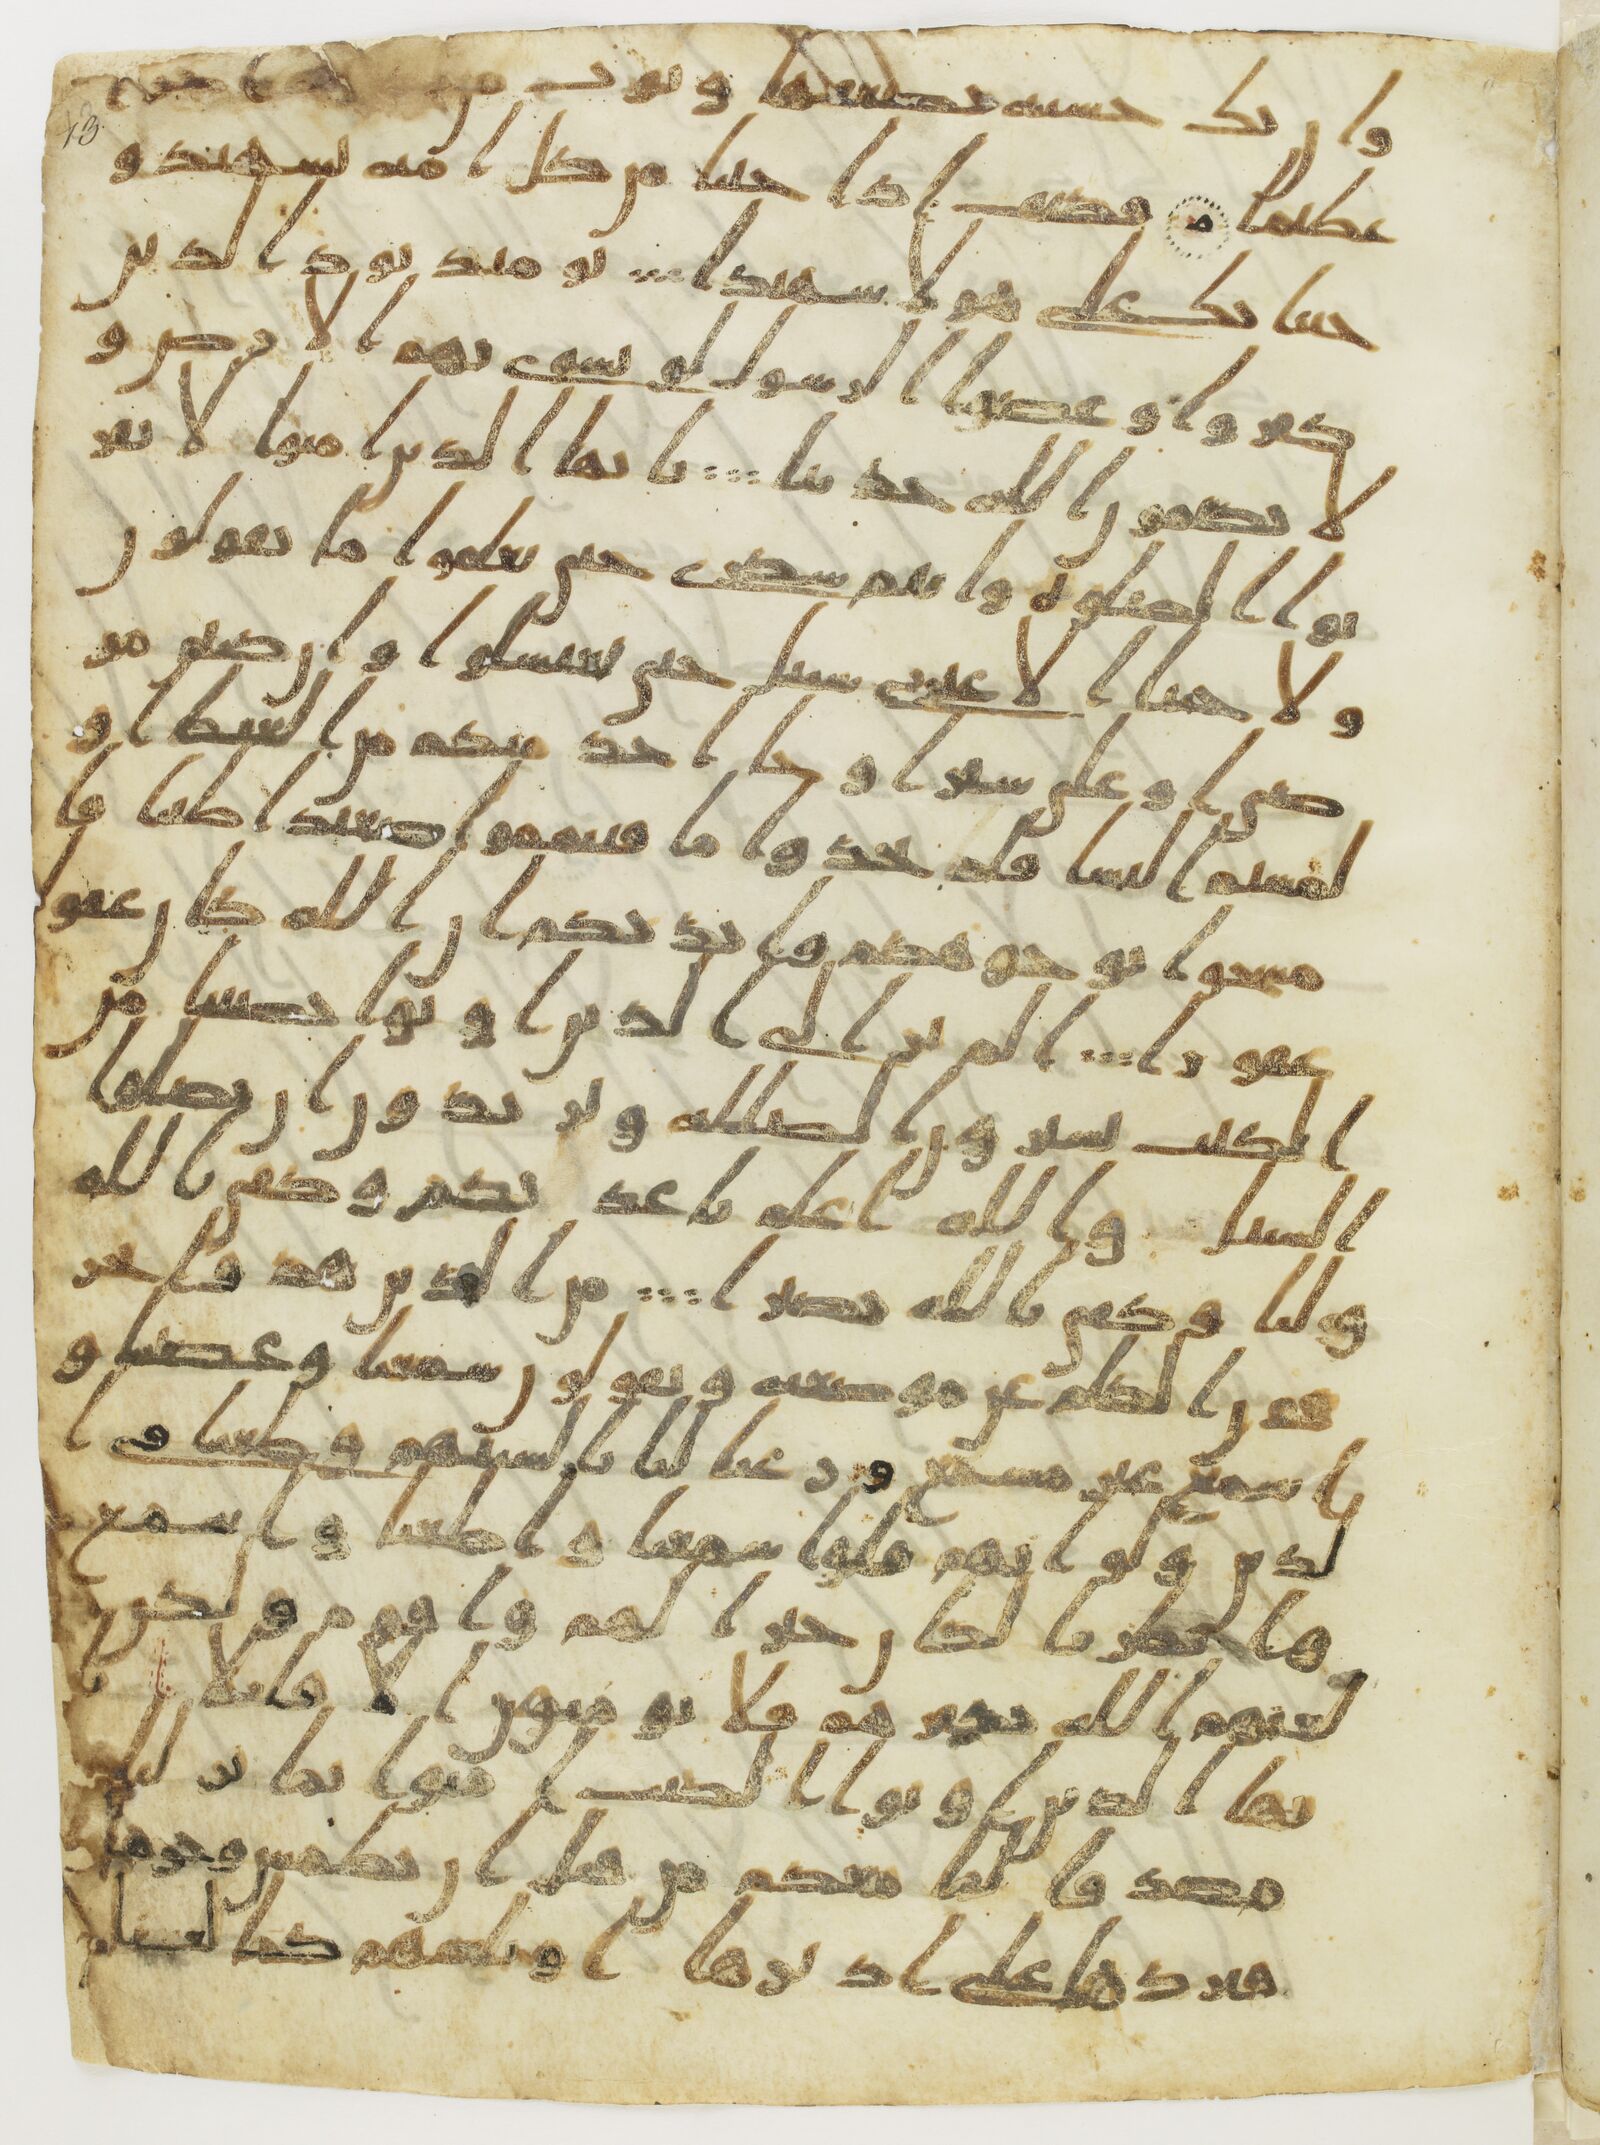 وان تك حسنه يضعفها ويوت من
عظيما فكيف اذا جينا من كل امه بشهيد و
جينا بك على هولا شهيدا يومئذ يود الذين
كفروا وعصوا الرسول لو تسوى بهم الارض و
لا يكتمون الله حديثا يايها الذين امنوا لا تقر
بوا الصلوه وانتم سكرى حتى تعلموا ما تقولون
ولا جنبا الا عبرى سبيل حتى تغتسلوا وان كنتم مر
ضى او على سفر او جا احد منكم من الغيط او
لمستم النسا فلم تجدوا ما فتيمموا صعيدا طيبا فا
مسحوا بوجوهكم وايديكم ان الله كان عفوا
غفورا الم تر الى الذين اوتوا نصيبا من
الكتب يشترون الضلله ويريدون ان تضلوا
السبيل والله اعلم باعدايكم وكفى بالله
وليا وكفى بالله نصيرا من الذين هدوا يحر
فون الكلم عن موضعه ويقولون سمعنا وعصينا و
اسمع غير مسمع ورعنا ليا بالسنتهم وطعنا فى ا
لدين ولو انهم قلوا سمعنا واطعنا واسمع
وانظرنا لكان خيرا لهم واقوم ولكن
لعنهم الله بكفرهم فلا يومنون الا قليلا يا
يها الذين اوتوا الكتب امنوا بما نزلنا
مصدقا لما معكم من قبل ان نطمس وجوها
فنردها على ادبرها او نلعنهم كما لعنا